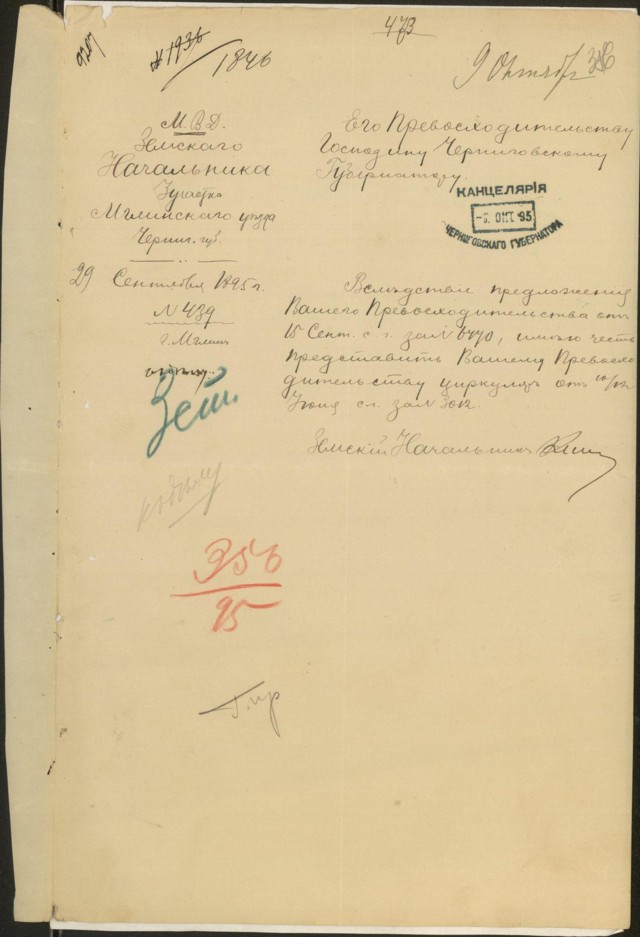 473
9287
№ 1936
1846
9 Октября
М.В.Д.
Земского
Начальника
участка
Мглинскаго уѣзда
Черниг. губ.
29 Сентября 1895 г.
N 439
г. Мглин
Его Превосходительству
Господину Черниговскому
Губернатору.
КАНЦЕЛЯРІЯ
ОКТ. 95
ЧЕРНИГОВСКАГО ГУБЕРНАТОРА
Вслѣдствіи предложенія
Вашего Превосходительства отъ
15 Сент. с. г. за N, имѣю честь
представить Вашему Превосхо
дительству циркуляръ отъ
Іюня с. г. за N 3012.
Земскій Начальникъ
к дѣлу
356
95